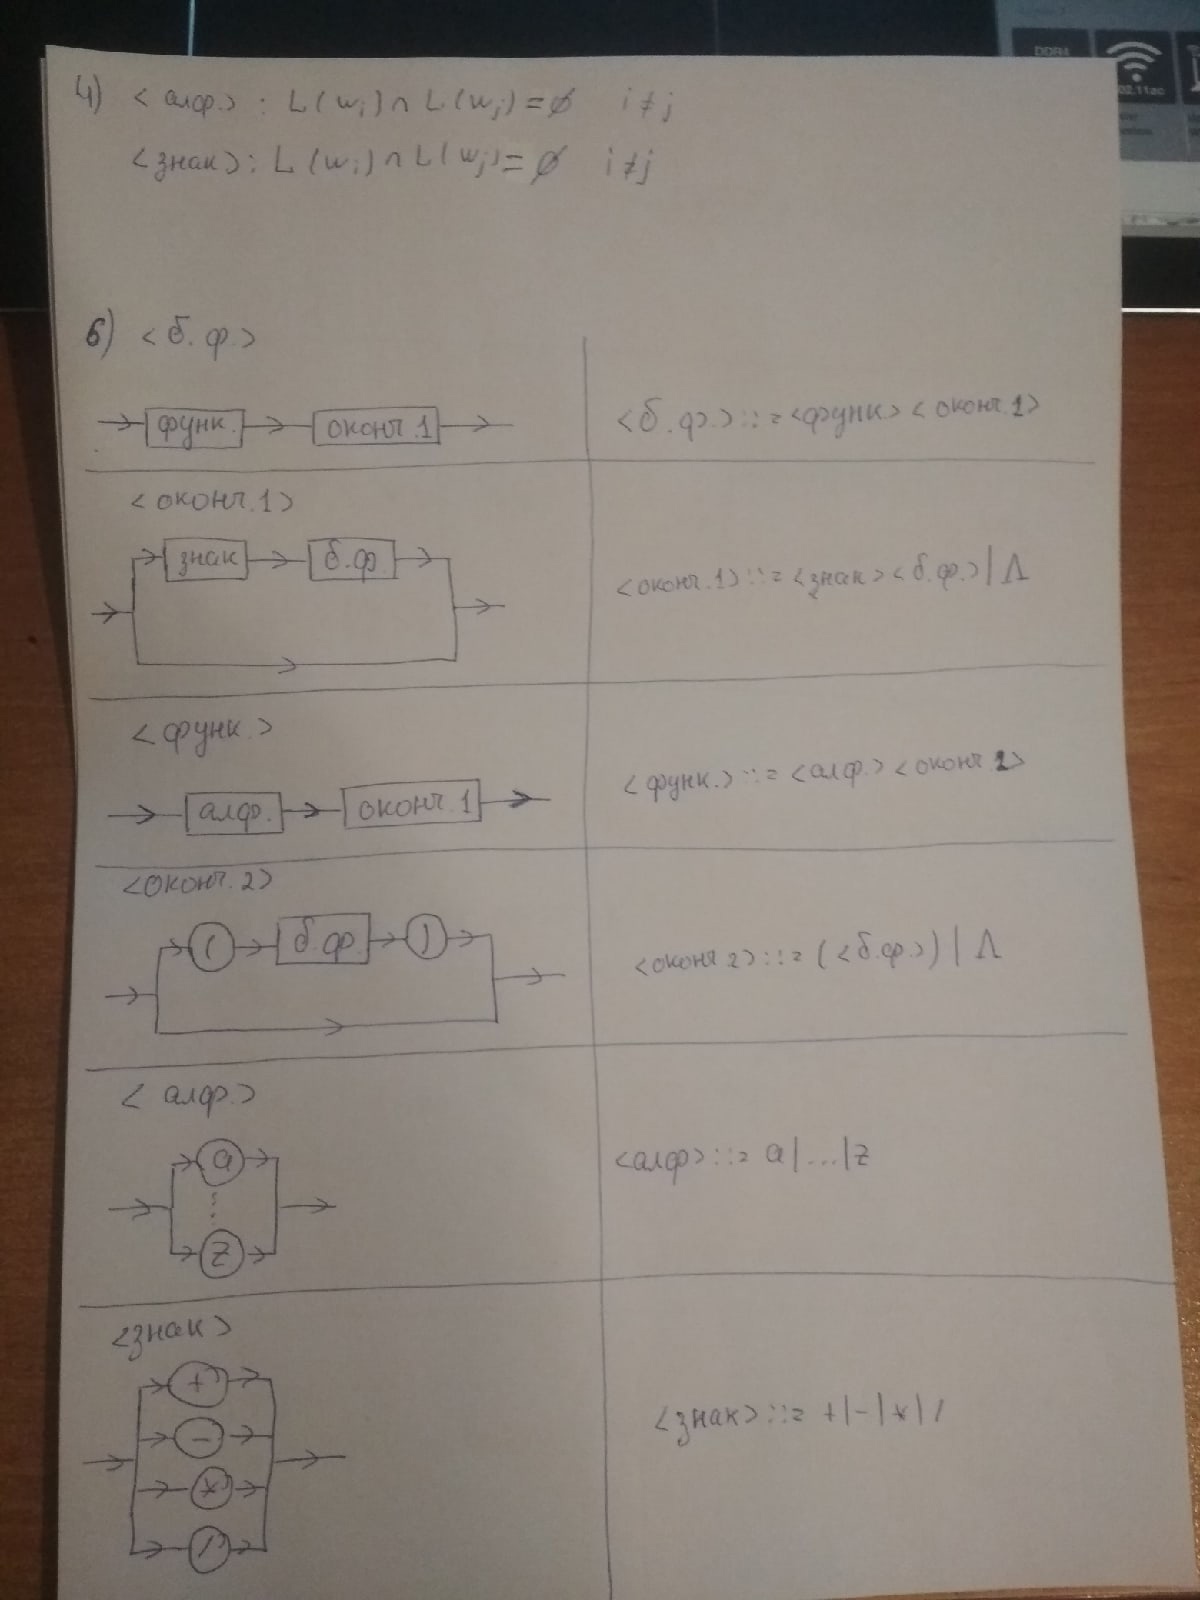 DDR4
02.11ac
4) <алф.> : L(wi) ∩ L(wj) = ∅ i ≠ j
<знак> : L(wi) ∩ L(wj) = ∅ i ≠ j
6) <б.ф.>
функ. оконч.1
<б.ф.> ::= <функ> <оконч.1>
<оконч.1>
знак б.ф.
<оконч.1> ::= <знак> <б.ф.> | Λ
<функ.>
алф. оконч.1
<функ.> ::= <алф.> <оконч.2>
<оконч.2>
( б.ф. )
<оконч.2> ::= (<б.ф.>) | Λ
<алф.>
a
⋮
z
<алф> ::= a | ... | z
<знак>
+
-
*
/
<знак> ::= + | - | * | /